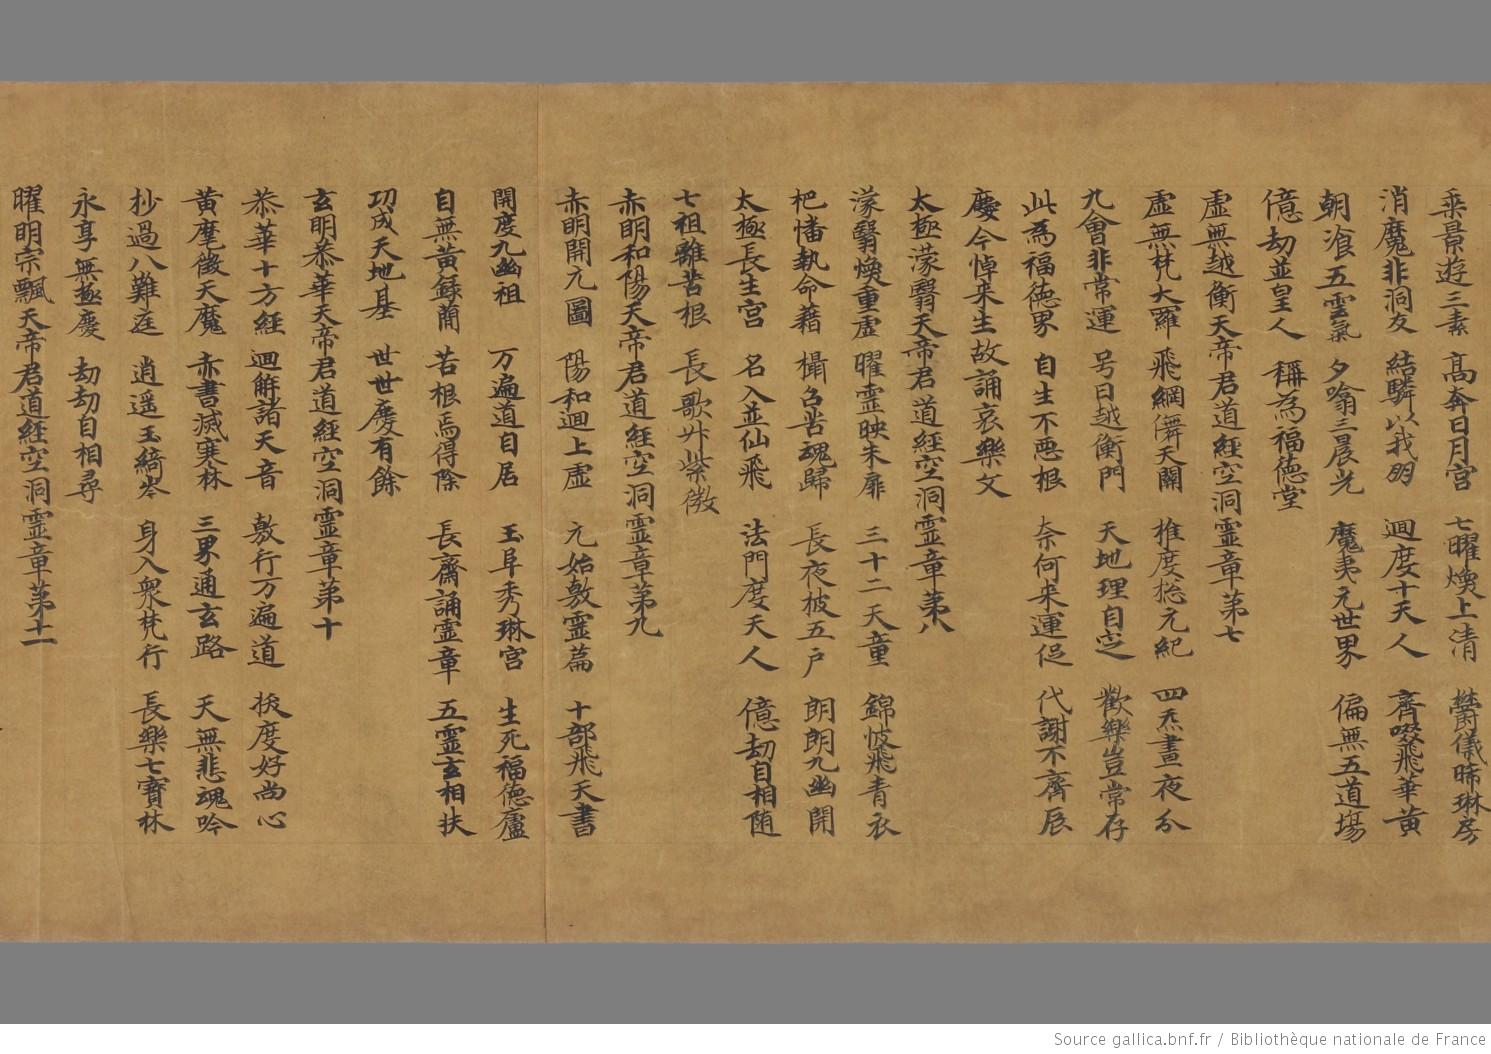 乘景遊三素　高奔日月宮　七曜煥上清　欝儀晞琳房
消魔非洞友　結驎以我明　迴度十天人　齊啜飛華黃
朝飡五雲氣　夕噏三晨光　魔夷元世界　偏無五道場
億劫並皇人　稱為福德堂
虛無越衡天帝君道經空洞靈章第七
虛無梵大羅　飛綱儛天關　推度惣元紀　四炁晝夜分
九會非常運　号曰越衡門　天地理自空　歡樂豈常存
此為福德界　自生不惡根　奈何來運促　代謝不齊辰
慶今悼來生　故誦哀樂文
太極濛翳天帝君道經空洞靈章第八
濛翳煥重虛　曜靈映朱扉　三十二天童　錦帔飛青衣
把幡執命藉　攝召苦魂歸　長夜披五戶　朗朗九幽開
太極長生宮　名入並仙飛　法門度天人　億劫自相随
七祖離苦根　長歌升紫微
赤明和陽天帝君道經空洞靈章第九
赤明開元圖　陽和迴上虛　元始敷靈篇　十部飛天書
開度九幽祖　万遍道自居　玉阜秀琳宮　生死福德廬
自無黃籙蕳　苦根焉得除　長齋誦靈章　五靈玄相扶
功成天地基　世世慶有餘
玄明恭華天帝君道經空洞靈章第十
恭華十方經　迴解諸天音　敷行万遍道　拔度好尚心
黃麾徵天魔　赤書滅寒林　三界通玄路　天無悲魂吟
抄過八難庭　逍遥玉綺岑　身入衆梵行　長樂七寶林
永享無極慶　劫劫自相尋
曜明宗飄天帝君道經空洞靈章第十一
Source gallica.bnf.fr / Bibliothèque nationale de France